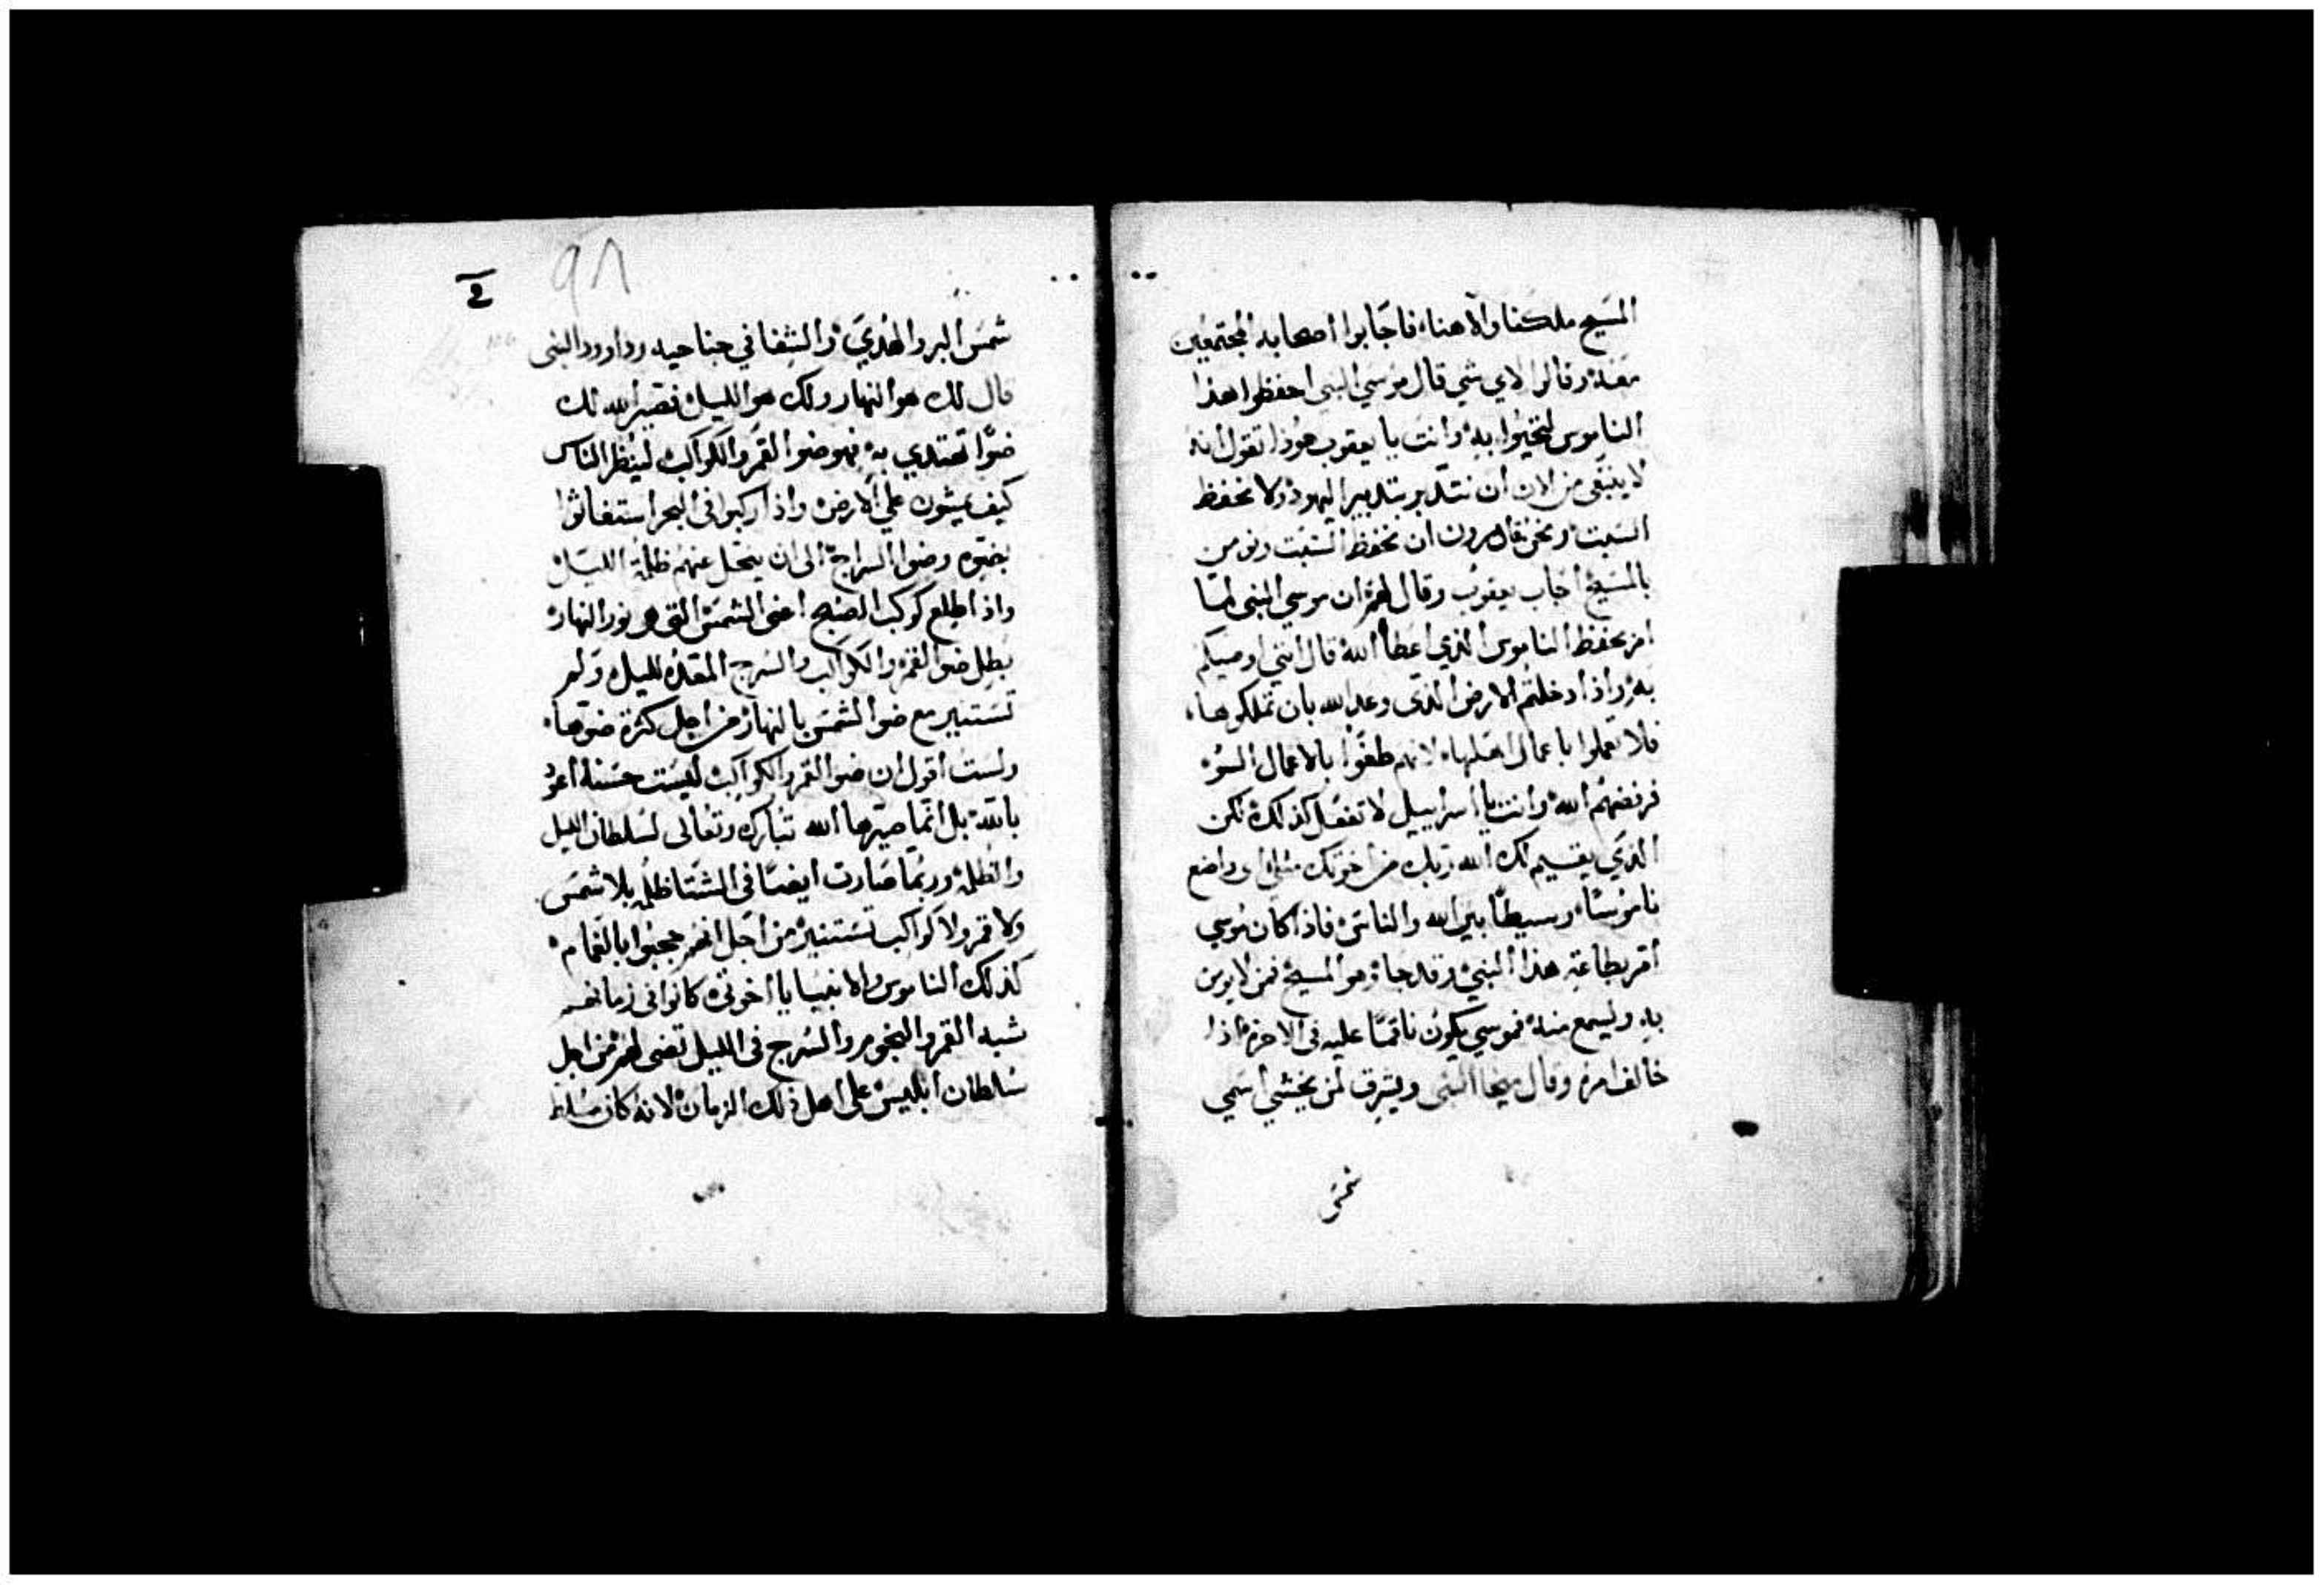 المسيح ملكنا والاهنا، فاجابوا اصحابه المجتمعين
معه وقالوا لاي شي قال موسي النبي احفظوا هذا
الناموس لتحيوا به وانت يا يعقوب هوذا تقول انه
لا ينبغي من الان ان نتدبر بتدبير اليهود ولا نحفظ
السبت ونحن قادرون ان نحفظ السبت ونومن
بالمسيح اجاب يعقوب وقال لهم ان موسي النبي لما
امر بحفظ الناموس الذي اعطاه الله قال انني اوصيكم
به واذا دخلتم الارض الذى وعد الله بان تملكوها،
فلا تعملوا باعمال اهلها، لانهم طغوا بالاعمال السوه
فرفضهم الله وانت يا اسراييل لا تفعل كذلك لكن
الذي يقسيم لك الله ربك من اخوتك مثلي وواضع
ناموسا، وسيطا بين الله والناس فاذا كان موسي
امر بطاعة هذا النبي وقد جا وهو المسيح فمن لا يومن
به ويسمع منه فموسي يكون ناقما عليه في الاخرة اذا
خالف امره وقال ميخا النبى ويشرق لمن يخشي اسمي
شمس
٩٨
شمس البر والهدي والشفا في جناحيه وداوود النبى
قال لك هو النهار ولك هو الليل فصير الله لك
ضوا تهتدي به فهو ضوا القمر والكواكب لينظر الناس
كيف يمشون علي الارض واذا ركبوا فى البحر استغاثوا
بضوه وضوا السراج الى ان ينحل عنهم ظلمة الليل
واذا طلع كوكب الصبح اعنى الشمس التى هو نور النهار
بطل ضوا القمر والكواكب والسرج المقده لليل ولم
تستنير مع ضوا الشمس بالنهار من اجل كثرة ضوها،
ولست اقول ان ضوا القمر والكواكب ليست حسنة اعوذ
بالله بل انما صيرها الله تبارك وتعالى لسلطان الليل
والظلمة وربما صارت ايضا فى الشتا ظلمه بلا شمس
ولا قمر ولا كواكب تستنير من اجل انهم حجبوا بالغمام
كذلك الناموس والانبيا يا اخوتى كانوا فى زمانهم
شبه القمر والنجوم والسرج فى الليل تضى لهم من اجل
سلطان ابليس على اهل ذلك الزمان لانه كان مسلط